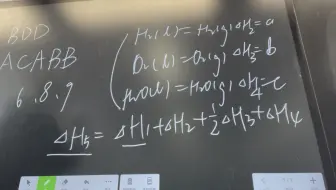 BDD
ACABB
6.8.9
H₂(l)=H₂(g) ΔH₂=a
O₂(l)=O₂(g) ΔH₃=b
H₂O(l)=H₂O(g) ΔH₄=c
ΔH₅=ΔH₁+ΔH₂+½ΔH₃+ΔH₄